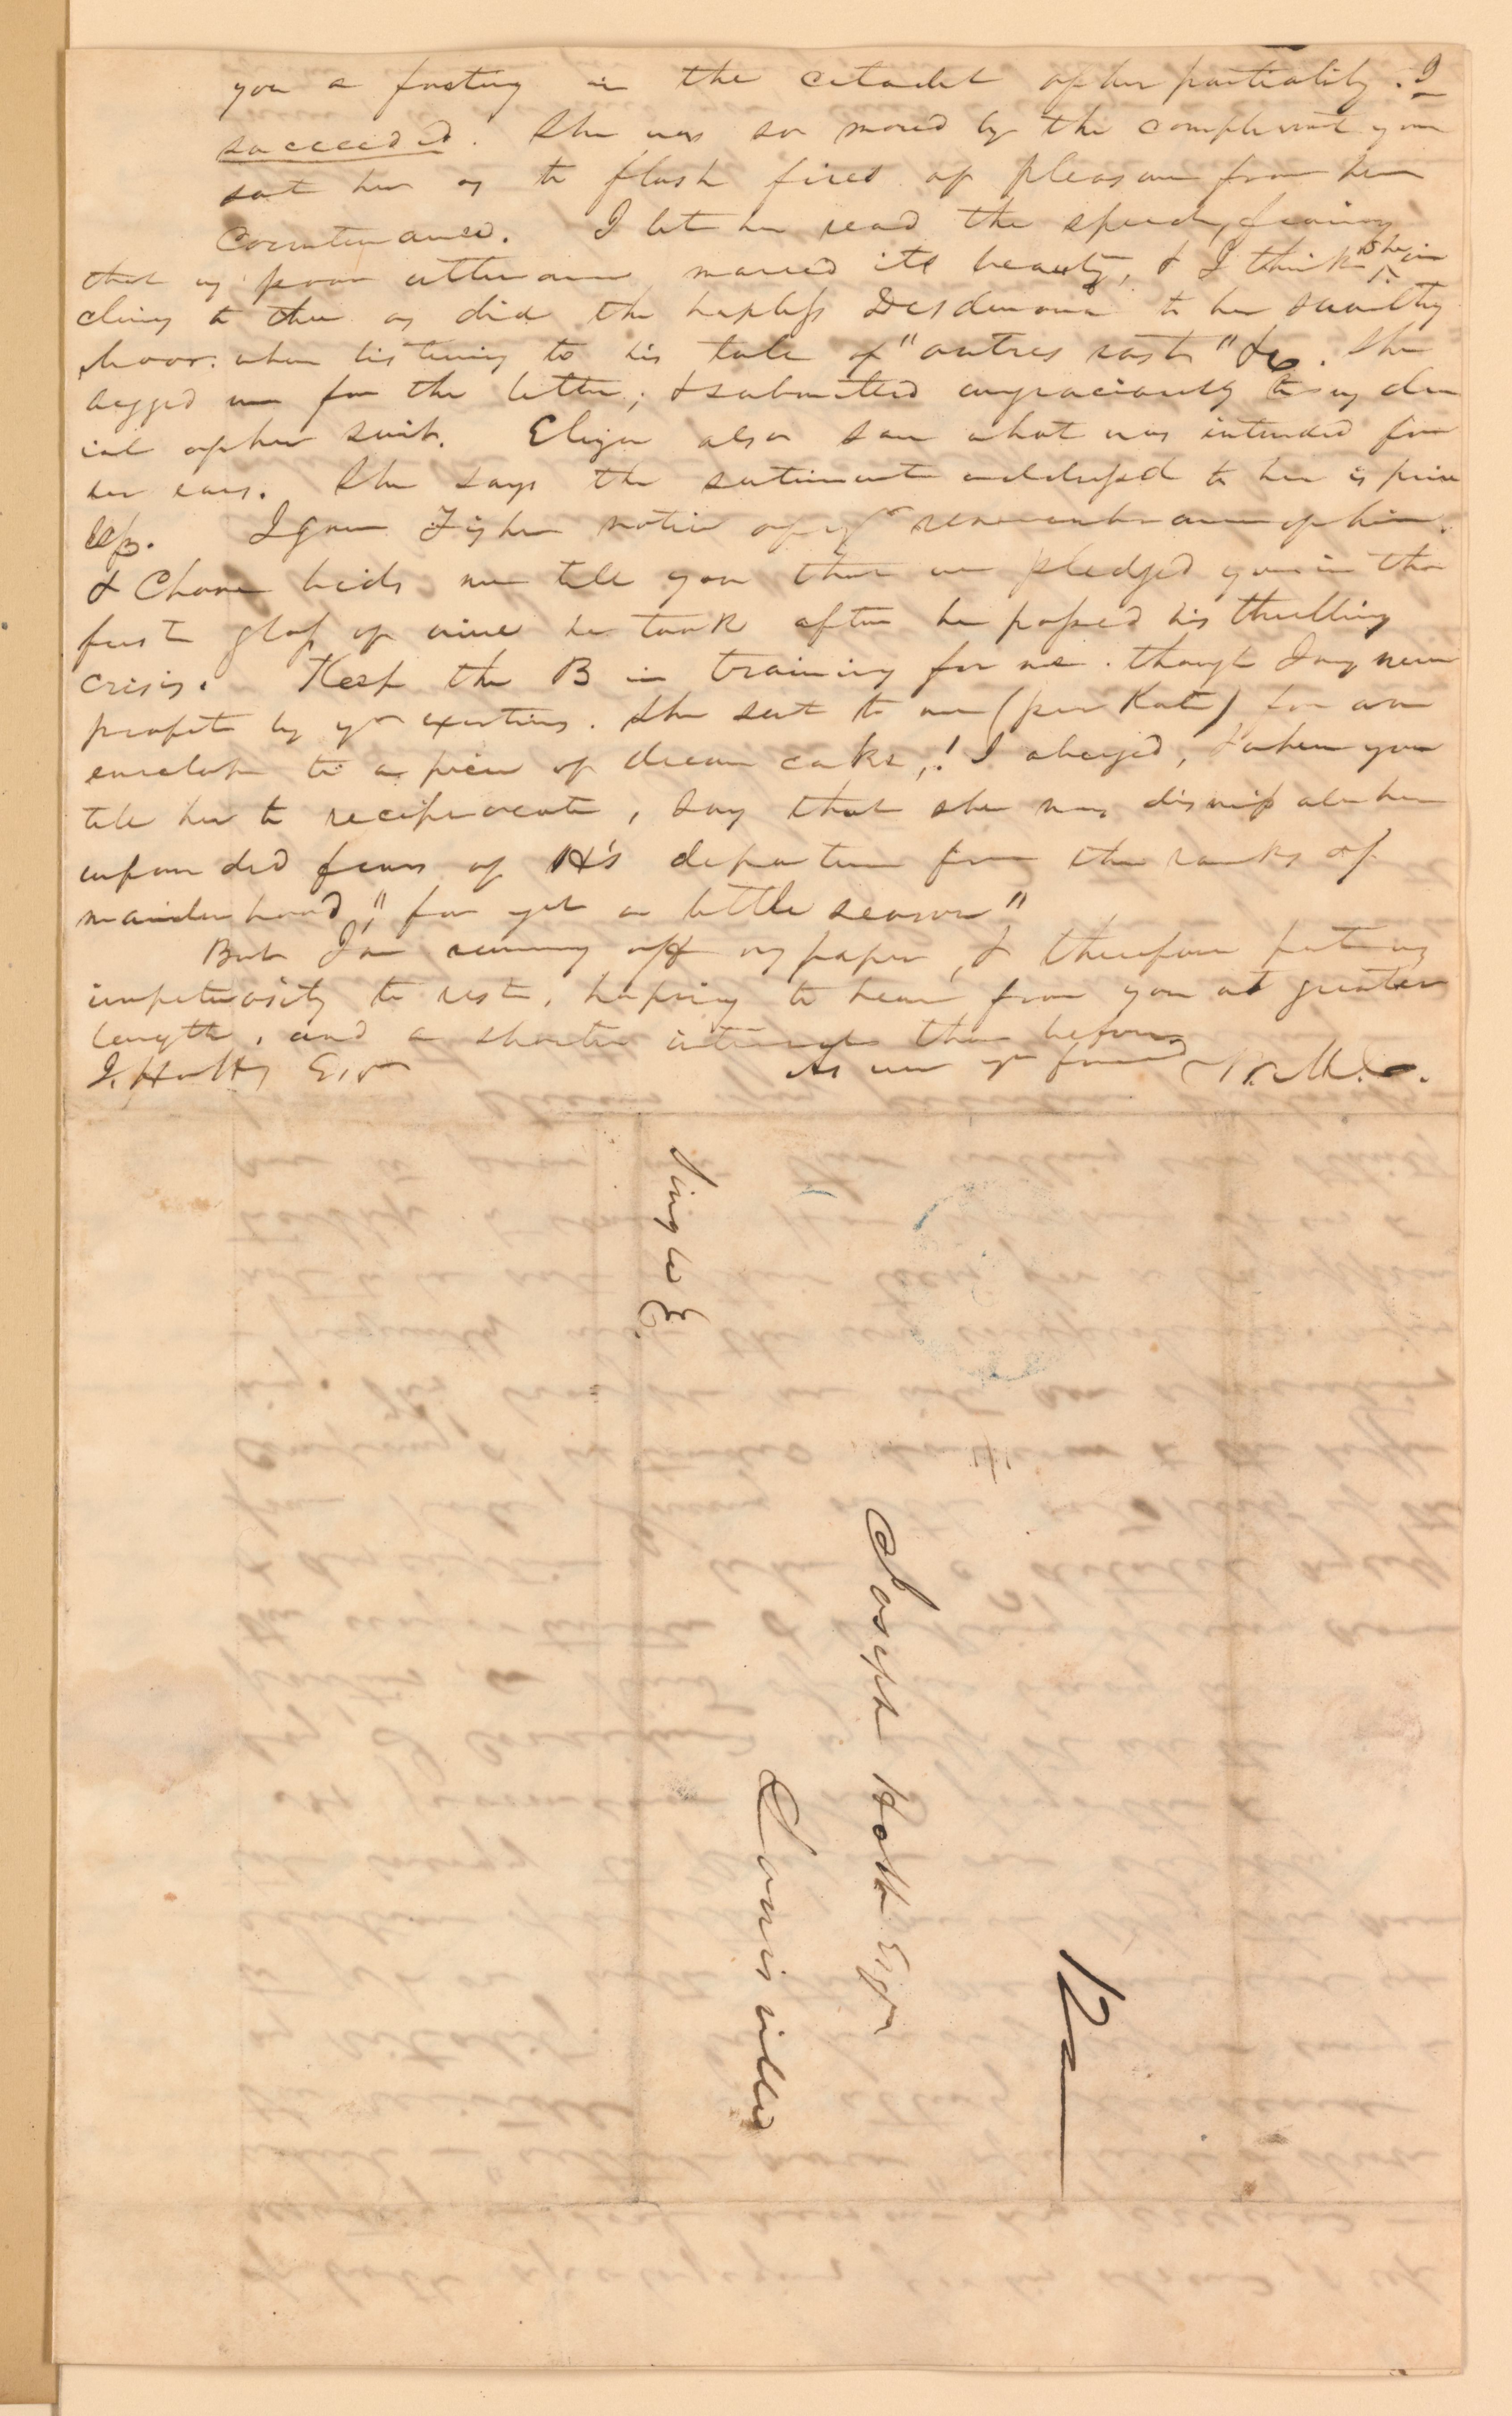 you a footing in the citadel of her partiality. I
succeeded. She was so moved by the compliment you
sent her as to flash fires of pleasure from her
Countenance. I let her read the speech, fearing
that my poor utterance marred its beauty, & I think she in
clines to thee as did the hapless Desdemona to her swarthy
Moor. when listening to his tale of "antres vast" &c. She
begged me for the letter; & submitted ungraciously to my den
ial of her suit. Eliza also saw what was intended for
her ears. She says the sentiment addressed to her is price
less. I gave Fisher notice of yr remembrance of him.
& Chase bids me tell you that we pledged you in the
first glass of wine he took after he passed his thrilling
crisis. Keep the B in training for me. though I may never
profit by yr exertions. She sent to me (per Kate) for an
envelope to a piece of dream cake,! I obeyed, & when you
tell her to reciprocate, say that she may dismiss all her
unfounded fears of H's departure from the ranks of
maidenhood, "for yet a little season"
But I'm running off my paper, & therefore put my
impetuosity to rest, hoping to hear from you at greater
length, and a shorter interval than before,
J. Holt Esqr As ever yr friend
Single
Joseph Holt Esqr
Louisville
12